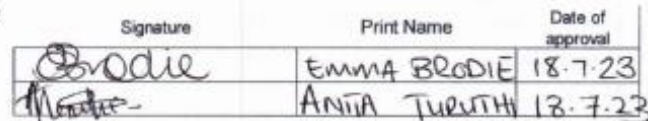 Signature Print Name Date of approval
Brodie EMMA BRODIE 18.7.23
ANITA TURUTHI 18.7.23